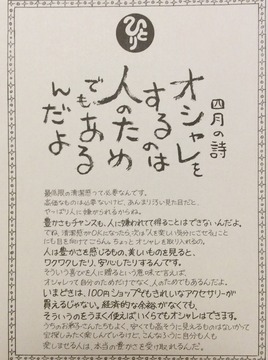 ひとり
四月の詩
オシャレを
するのは
人のため
でもある
んだよ
最低限の清潔感って必要なんです。
高価なものは必要ないけど、あんまりひどい見た目だと、
やっぱり人に嫌がられるからね。
豊かさもチャンスも、人に嫌われてて得ることはできないんだよ。
でね、清潔感がOKになったら、次は「人を楽しい気分にさせる」こと
にも目を向けてごらん。ちょっとオシャレを取り入れるの。
人は豊かさを感じるもの、美しいものを見ると、
ワクワクしたり、幸せにしたりするんです。
そういう喜びを人に贈るという意味で言えば、
オシャレって自分のためだけでなく、人のためでもあるんだよ。
いまどきは、100円ショップでもきれいなアクセサリーが
買えるじゃない。経済的な余裕がなくても、
そういうのをうまく使えば、いくらでもオシャレはできます。
うちのお弟子さんたちもよく、安くても高そうに見えるものはないかって
宝探しみたく楽しんでいるけど、こんなふうに自分も人も
愛しませる人は、本当の豊かさを受け取れるんだ。